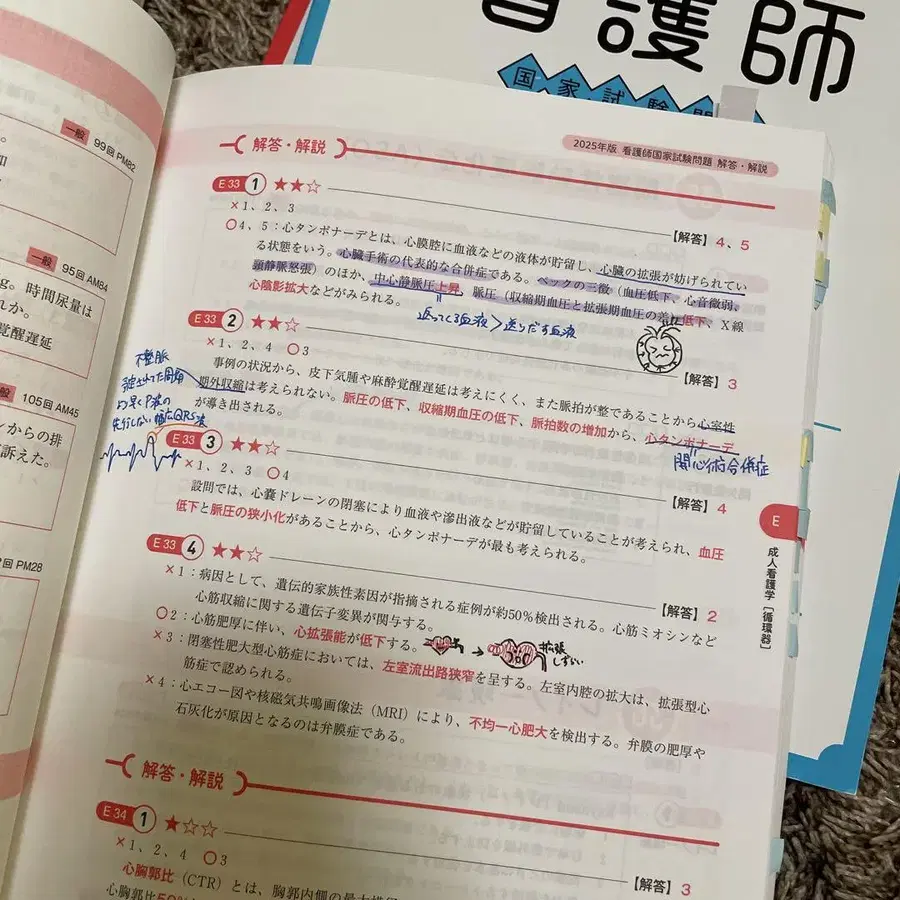 看護師
国家試験問
一般 99回 PM82
一般 95回 AM84
g。時間尿量は
れか。
覚醒遅延
105回 AM45
ンからの排
訴えた。
回 PM28
2025年版 看護師国家試験問題 解答・解説
解答・解説
E 33 1 ★★☆
【解答】4、5
×1、2、3
○4、5：心タンポナーデとは、心膜腔に血液などの液体が貯留し、心臓の拡張が妨げられてい
る状態をいう。心臓手術の代表的な合併症である。ベックの三徴（血圧低下、心音微弱、
頸静脈怒張）のほか、中心静脈圧上昇、脈圧（収縮期血圧と拡張期血圧の差）低下、X線
心陰影拡大などがみられる。
返ってくる血液＞送りだす血液
E 33 2 ★★☆
【解答】3
×1、2、4 ○3
事例の状況から、皮下気腫や麻酔覚醒遅延は考えにくく、また脈拍が整であることから心室性
期外収縮は考えられない。脈圧の低下、収縮期血圧の低下、脈拍数の増加から、心タンポナーデ
が導き出される。
開心術合併症
不整脈
先行しない幅広QRS波
E 33 3 ★★☆
【解答】4
×1、2、3 ○4
設問では、心嚢ドレーンの閉塞により血液や滲出液などが貯留していることが考えられ、血圧
低下と脈圧の狭小化があることから、心タンポナーデが最も考えられる。
E 33 4 ★★☆
【解答】2
×1：病因として、遺伝的家族性素因が指摘される症例が約50％検出される。心筋ミオシンなど
心筋収縮に関する遺伝子変異が関与する。
○2：心筋肥厚に伴い、心拡張能が低下する。
拡張
しずらい
×3：閉塞性肥大型心筋症においては、左室流出路狭窄を呈する。左室内腔の拡大は、拡張型心
筋症で認められる。
×4：心エコー図や核磁気共鳴画像法（MRI）により、不均一心肥大を検出する。弁膜の肥厚や
石灰化が原因となるのは弁膜症である。
解答・解説
E 34 1 ★☆☆
【解答】3
×1、2、4 ○3
心胸郭比（CTR）とは、胸郭内側の最大横径
心胸郭比50％
E
成人看護学［循環器］